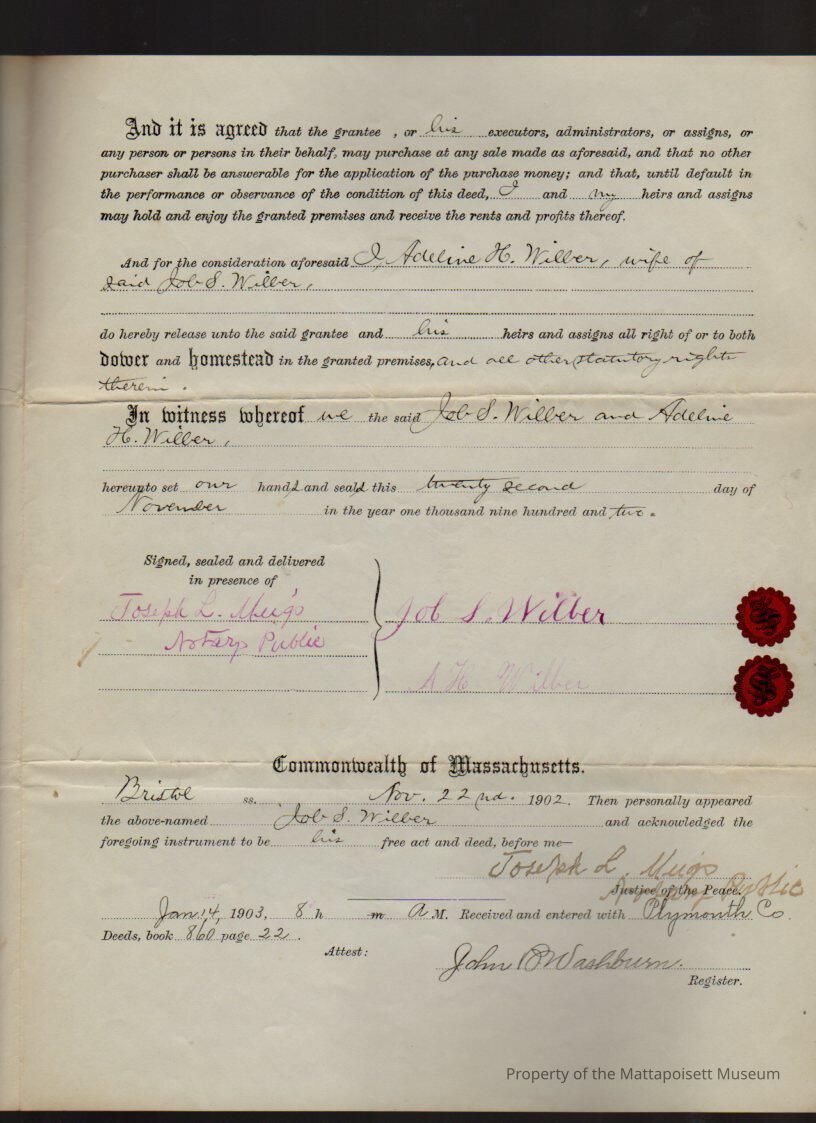 And it is agreed that the grantee , or his executors, administrators, or assigns, or
any person or persons in their behalf, may purchase at any sale made as aforesaid, and that no other
purchaser shall be answerable for the application of the purchase money; and that, until default in
the performance or observance of the condition of this deed, I and my heirs and assigns
may hold and enjoy the granted premises and receive the rents and profits thereof.
And for the consideration aforesaid I, Adeline H. Wilber, wife of
said Job S. Wilber,
do hereby release unto the said grantee and his heirs and assigns all right of or to both
dower and homestead in the granted premises, and all other statutory rights
therein.
In witness whereof we the said Job S. Wilber and Adeline
H. Wilber,
hereunto set our hands and seals this twenty second day of
November in the year one thousand nine hundred and two.
Signed, sealed and delivered
in presence of
Joseph L. Meigs
Notary Public
Job S. Wilber
A H Wilber
Commonwealth of Massachusetts.
Bristol ss. Nov. 22nd. 1902. Then personally appeared
the above-named Job S. Wilber and acknowledged the
foregoing instrument to be his free act and deed, before me—
Joseph L. Meigs
Justice of the Peace. Notary Public
Jan 14, 1903, 8 h m A M. Received and entered with Plymouth Co.
Deeds, book 860 page 22.
Attest:
John B Washburn.
Register.
Property of the Mattapoisett Museum